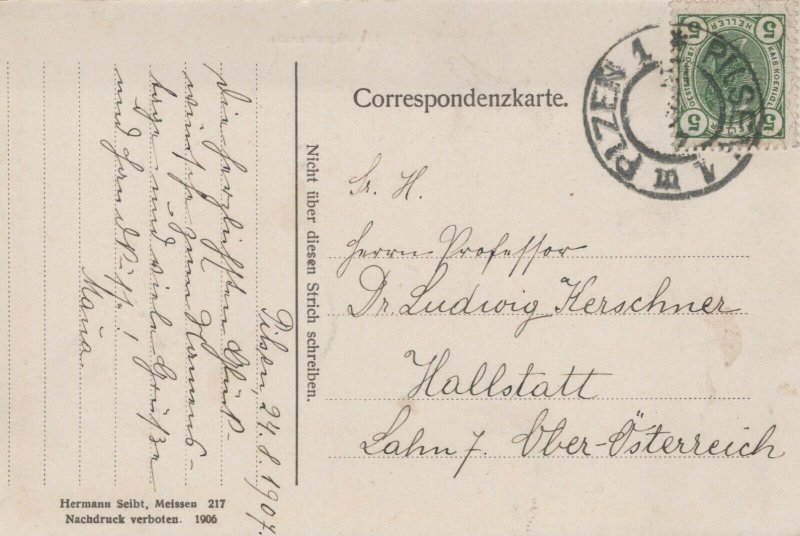 Correspondenzkarte.
5 HELLER 5
PLZEN 1 * PILSEN 1
Nicht über diesen Strich schreiben.
Sr. H.
Herrn Professor
Dr. Ludwig Kerschner
Hallstatt
Lahn 7. Ober-Österreich
Pilsen, 24.8.1907.
Die herzlichsten Glück-
wünsche zum Namens-
tage und viele Grüße
und Handküsse!
Hermann Seibt, Meissen 217
Nachdruck verboten. 1906